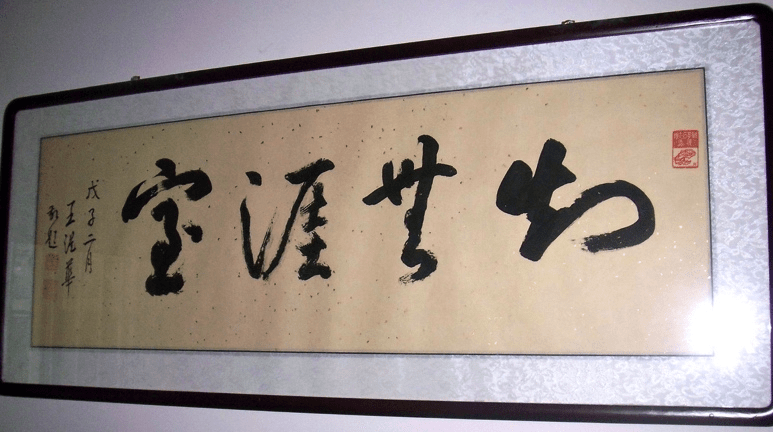 知無涯室
戊子二月
王湜華
敬題